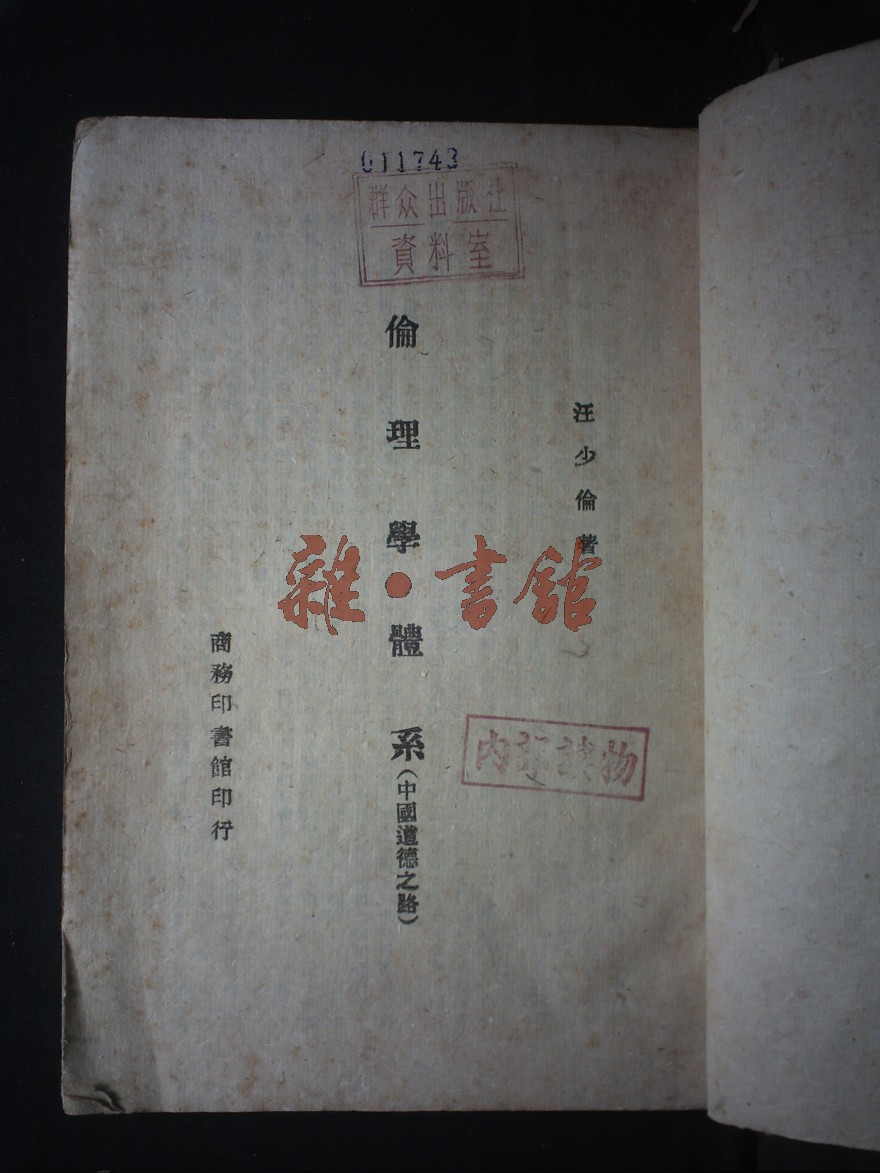 011743
群众出版社
資料室
汪少倫著
倫理學體系(中國道德之路)
商務印書館印行
雜·書館
内部讀物